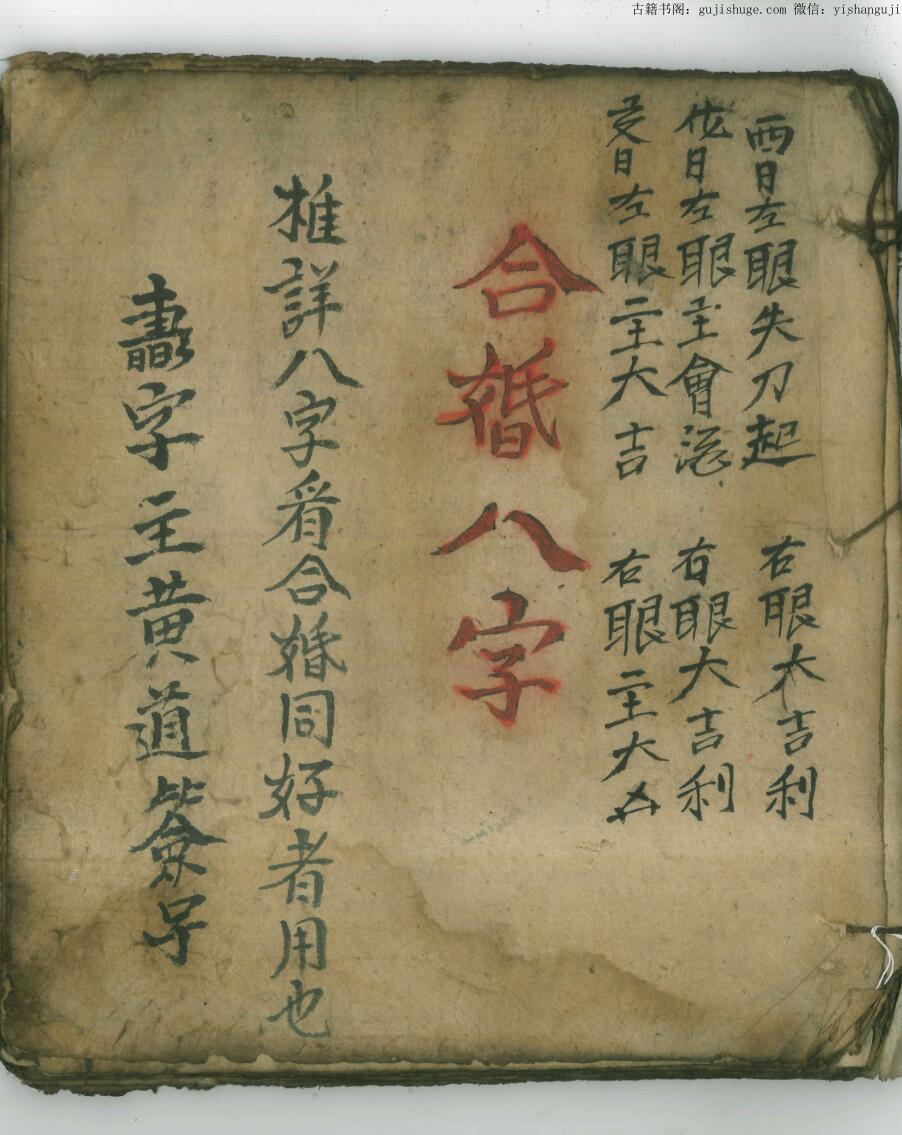 古籍书阁：gujishuge.com 微信：yishanguji
酉日左眼失刀起 右眼大吉利
日左眼主會 右眼大吉利
日左眼主大吉 右眼主大凶
合婚八字
推詳八字看合婚同好者用也
字主黄道